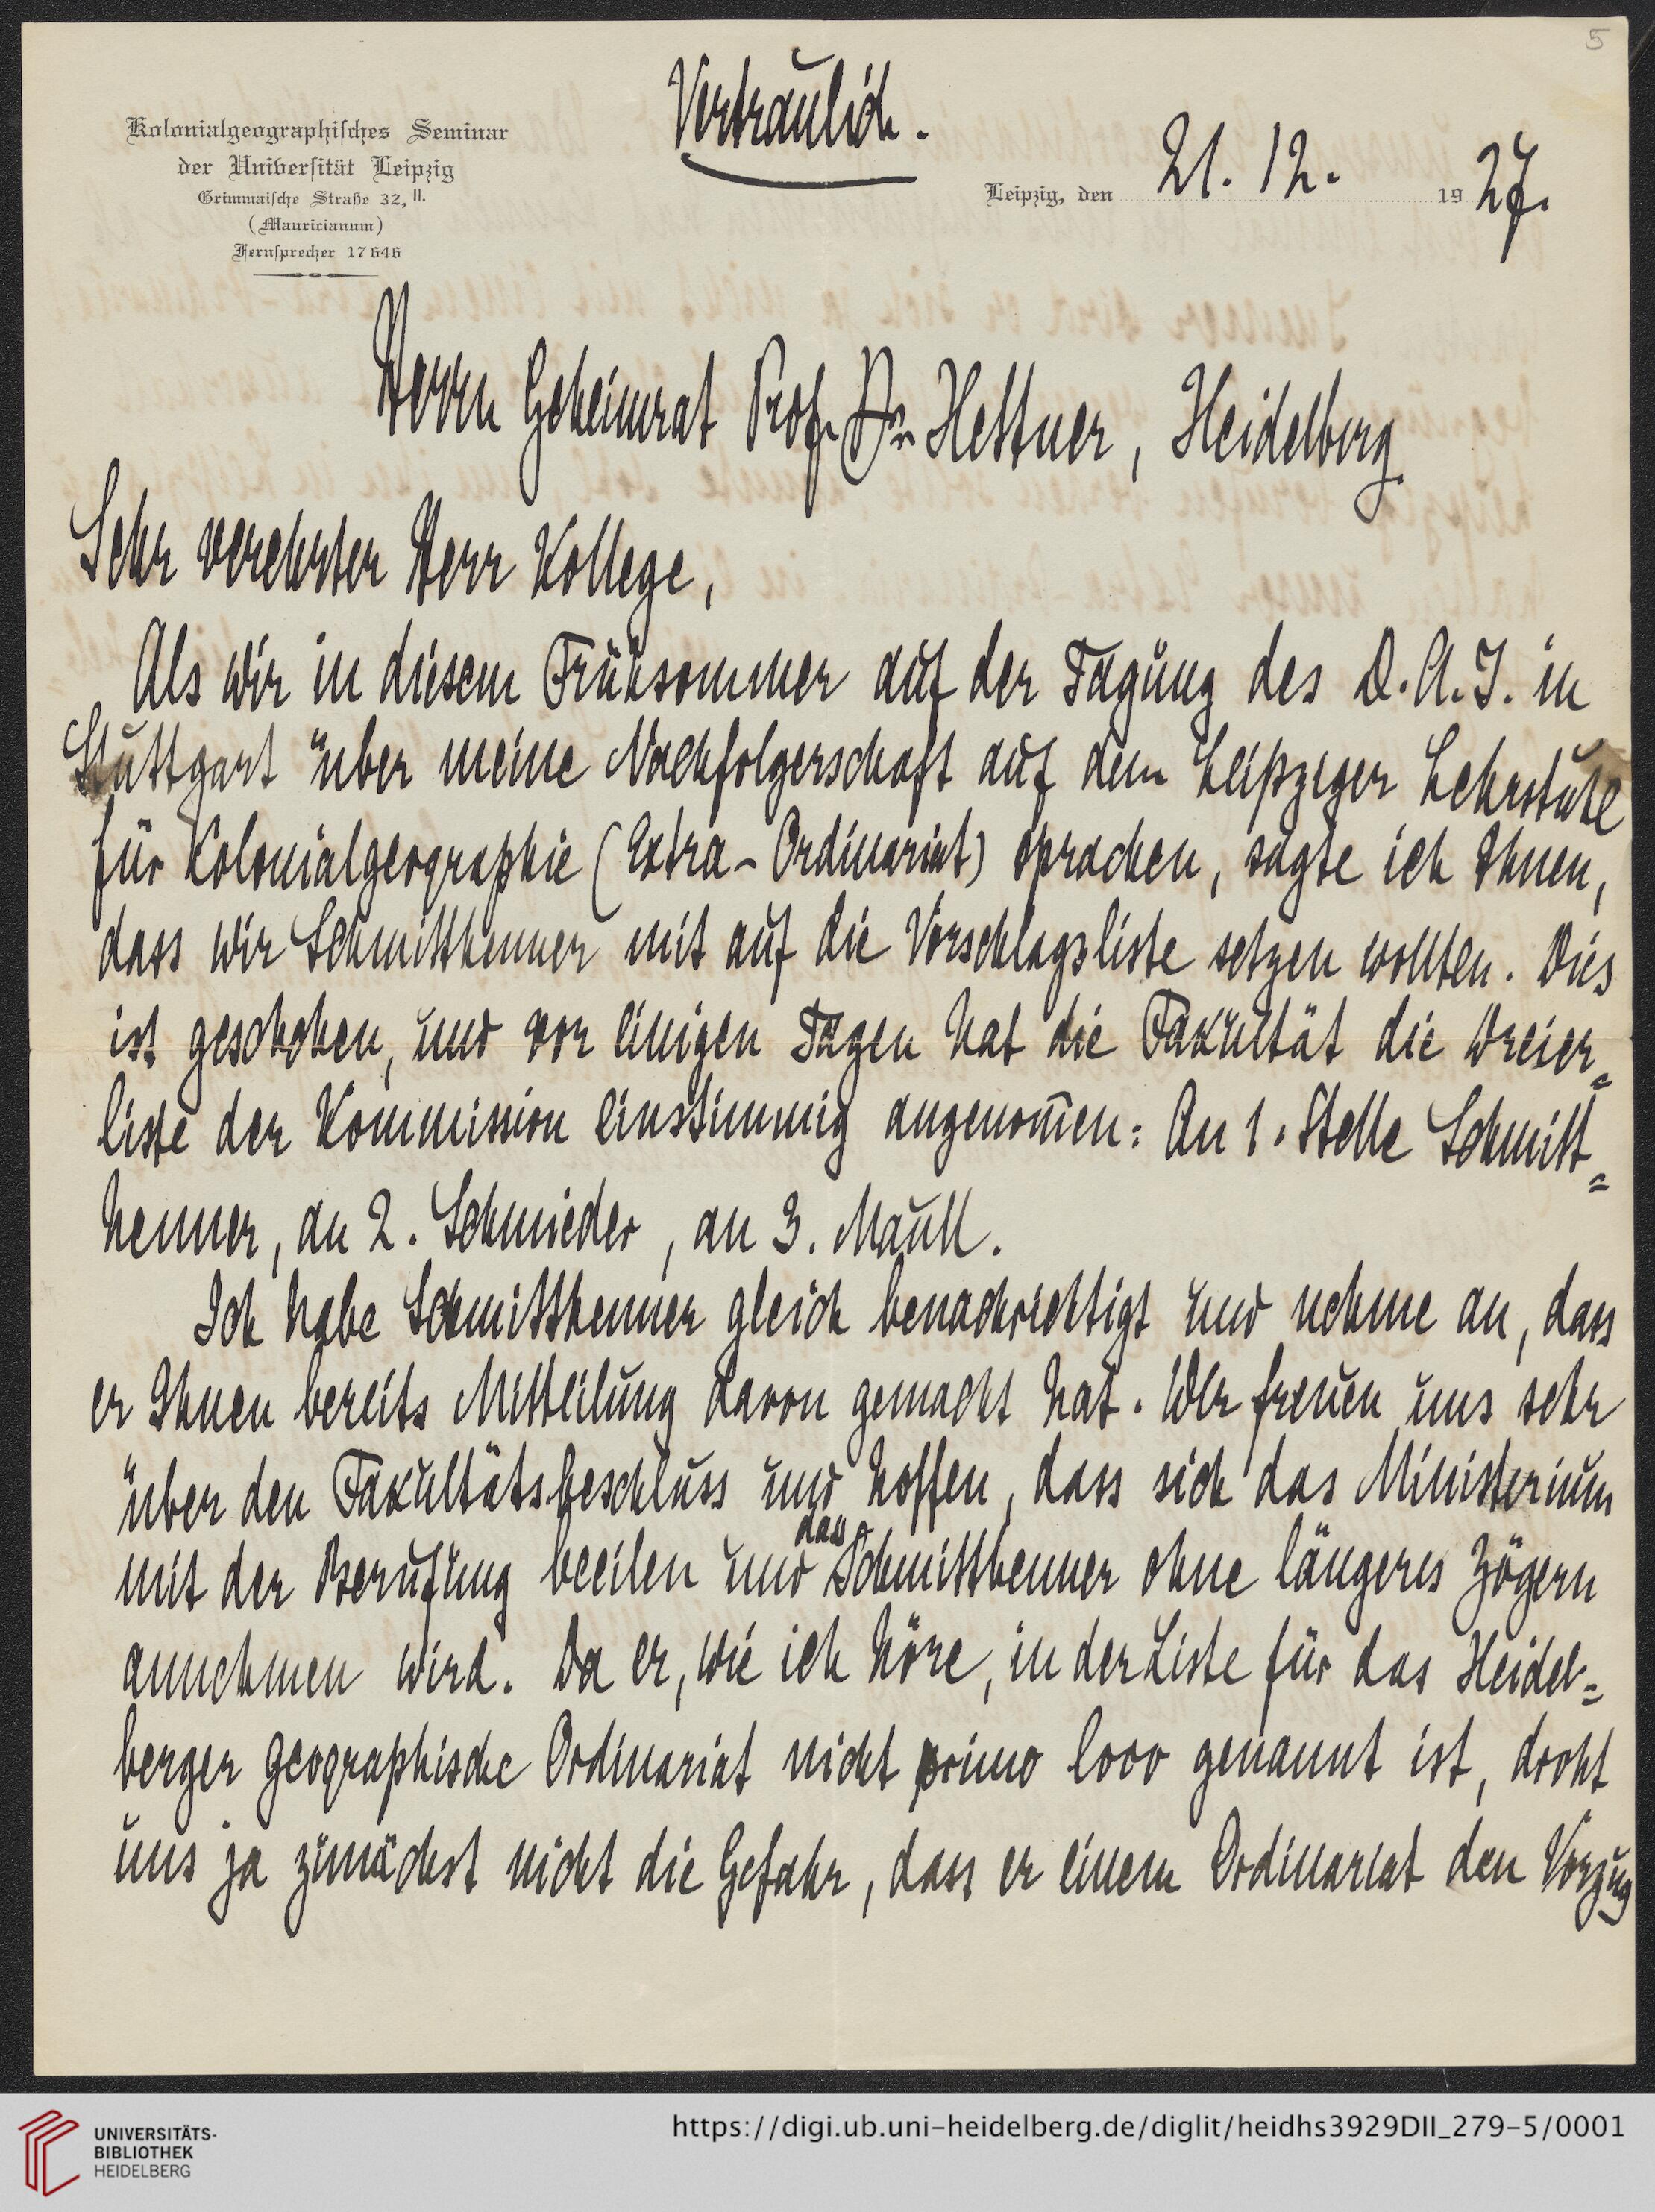 5
Vertraulich.
Kolonialgeographisches Seminar
der Universität Leipzig
Grimmaische Straße 32, II.
(Mauricianum)
Fernsprecher 17646
Leipzig, den 21. 12. 1927.
Herrn Geheimrat Prof. Dr. Hettner, Heidelberg.
Sehr verehrter Herr Kollege,
Als wir in diesem Frühsommer auf der Tagung des D.A.I. in
Stuttgart über meine Nachfolgerschaft auf dem Leipziger Lehrstuhl
für Kolonialgeographie (Extra-Ordinariat) sprachen, sagte ich Ihnen,
dass wir Schmitthenner mit auf die Vorschlagsliste setzen wollten. Dies
ist geschehen, und vor einigen Tagen hat die Fakultät die Dreier=
liste der Kommission einstimmig angenom̅en: An 1. Stelle Schmitt=
henner, an 2. Schmieder, an 3. Maull.
Ich habe Schmitthenner gleich benachrichtigt und nehme an, dass
er Ihnen bereits Mitteilung davon gemacht hat. Wir freuen uns sehr
über den Fakultätsbeschluss und hoffen, dass sich das Ministerium
mit der Berufung beeilen und dass Schmitthenner ohne längeres Zögern
annehmen wird. Da er, wie ich höre, in der Liste für das Heidel=
berger geographische Ordinariat nicht primo loco genannt ist, droht
uns ja zunächst nicht die Gefahr, dass er einem Ordinariat den Vorzug
UNIVERSITÄTS-
BIBLIOTHEK
HEIDELBERG
https://digi.ub.uni-heidelberg.de/diglit/heidhs3929DII_279-5/0001